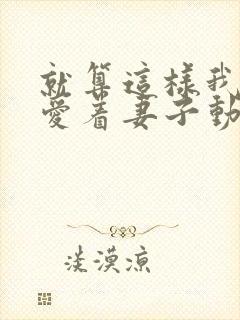 就算這樣我
愛着妻子動
淡漠涼